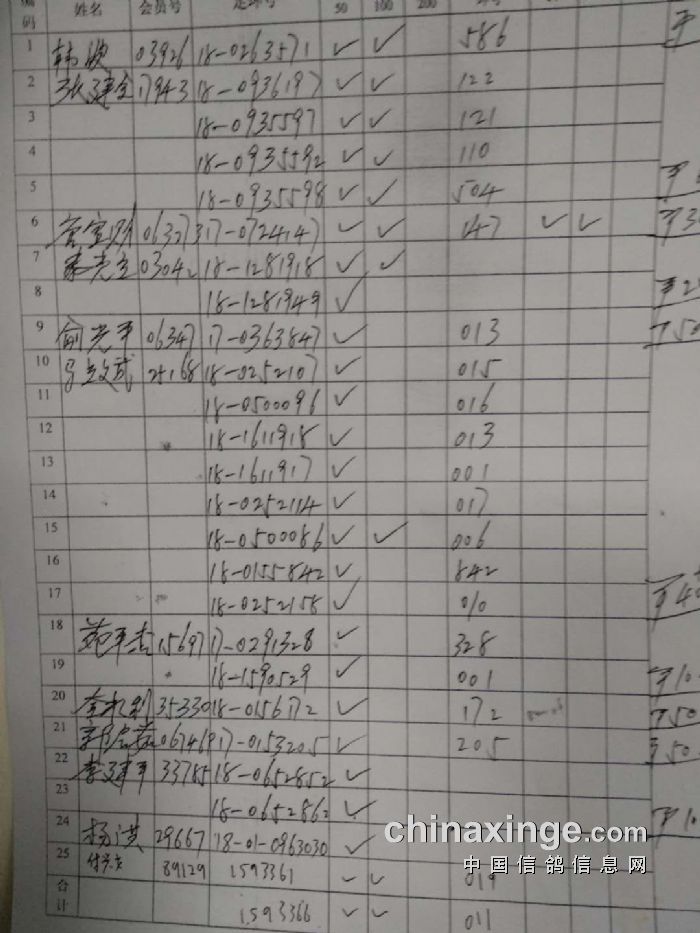 码 姓名 会员号 足环号 50 100 200
1 韩波 03926 18-0263571 ✓ ✓ 586
2 张建全 17943 18-0936197 ✓ ✓ 122
3 18-0935597 ✓ ✓ 121
4 18-0935592 ✓ ✓ 110
5 18-0935598 ✓ ✓ 504
6 06327 17-0724147 ✓ ✓ 147 ✓ ✓
7 0304 18-1281918 ✓ ✓
8 18-1281949 ✓
9 俞光平 06347 17-0363847 ✓ 013
10 马文武 25168 18-0252107 ✓ 015
11 18-0500096 ✓ 016
12 18-1611918 ✓ 013
13 18-1611917 ✓ 001
14 18-0252114 ✓ 017
15 18-0500086 ✓ ✓ 006
16 18-0155842 ✓ 842
17 18-0252158 ✓ 010
18 15697 17-0291328 ✓ 328
19 18-1590529 ✓ 001
20 35330 18-0156172 ✓ 172
21 06746 17-0153205 ✓ 205
22 李建平 33785 18-0652852 ✓
23 18-0652862 ✓
24 杨洪 29667 18-01-0963030 ✓
25 89129 1593361 ✓ ✓ 019
合计 1593366 ✓ ✓ 011
chinaxinge.com
中国信鸽信息网